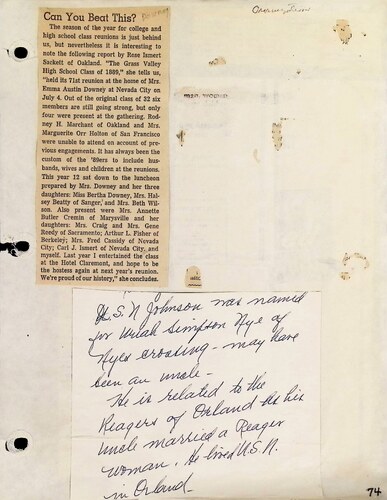 Can You Beat This?
The season of the year for college and
high school class reunions is just behind
us, but nevertheless it is interesting to
note the following report by Rose Ismert
Sackett of Oakland. "The Grass Valley
High School Class of 1889," she tells us,
"held its 71st reunion at the home of Mrs.
Emma Austin Downey at Nevada City on
July 4. Out of the original class of 32 six
members are still going strong, but only
four were present at the gathering. Rod-
ney H. Marchant of Oakland and Mrs.
Marguerite Orr Holton of San Francisco
were unable to attend on account of pre-
vious engagements. It has always been the
custom of the '89ers to include hus-
bands, wives and children at the reunions.
This year 12 sat down to the luncheon
prepared by Mrs. Downey and her three
daughters: Miss Bertha Downey, Mrs. Hal-
sey Beatty of Sanger, and Mrs. Beth Wil-
son. Also present were Mrs. Annette
Butler Cremin of Marysville and her
daughters: Mrs. Craig and Mrs. Gene
Reedy of Sacramento; Arthur L. Fisher of
Berkeley; Mrs. Fred Cassidy of Nevada
City; Carl J. Ismert of Nevada City, and
myself. Last year I entertained the class
at the Hotel Claremont, and hope to be
the hostess again at next year's reunion.
We're proud of our history," she concludes.
U.S.N Johnson was named
for Uriah Simpson Nye of
Nyes crossing - may have
been an uncle -
He is related to the
Reagers of Orland as his
uncle married a Reager
woman. He lived U.S.N.
in Orland
74